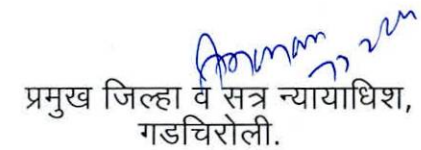 प्रमुख जिल्हा व सत्र न्यायाधिश,
गडचिरोली.